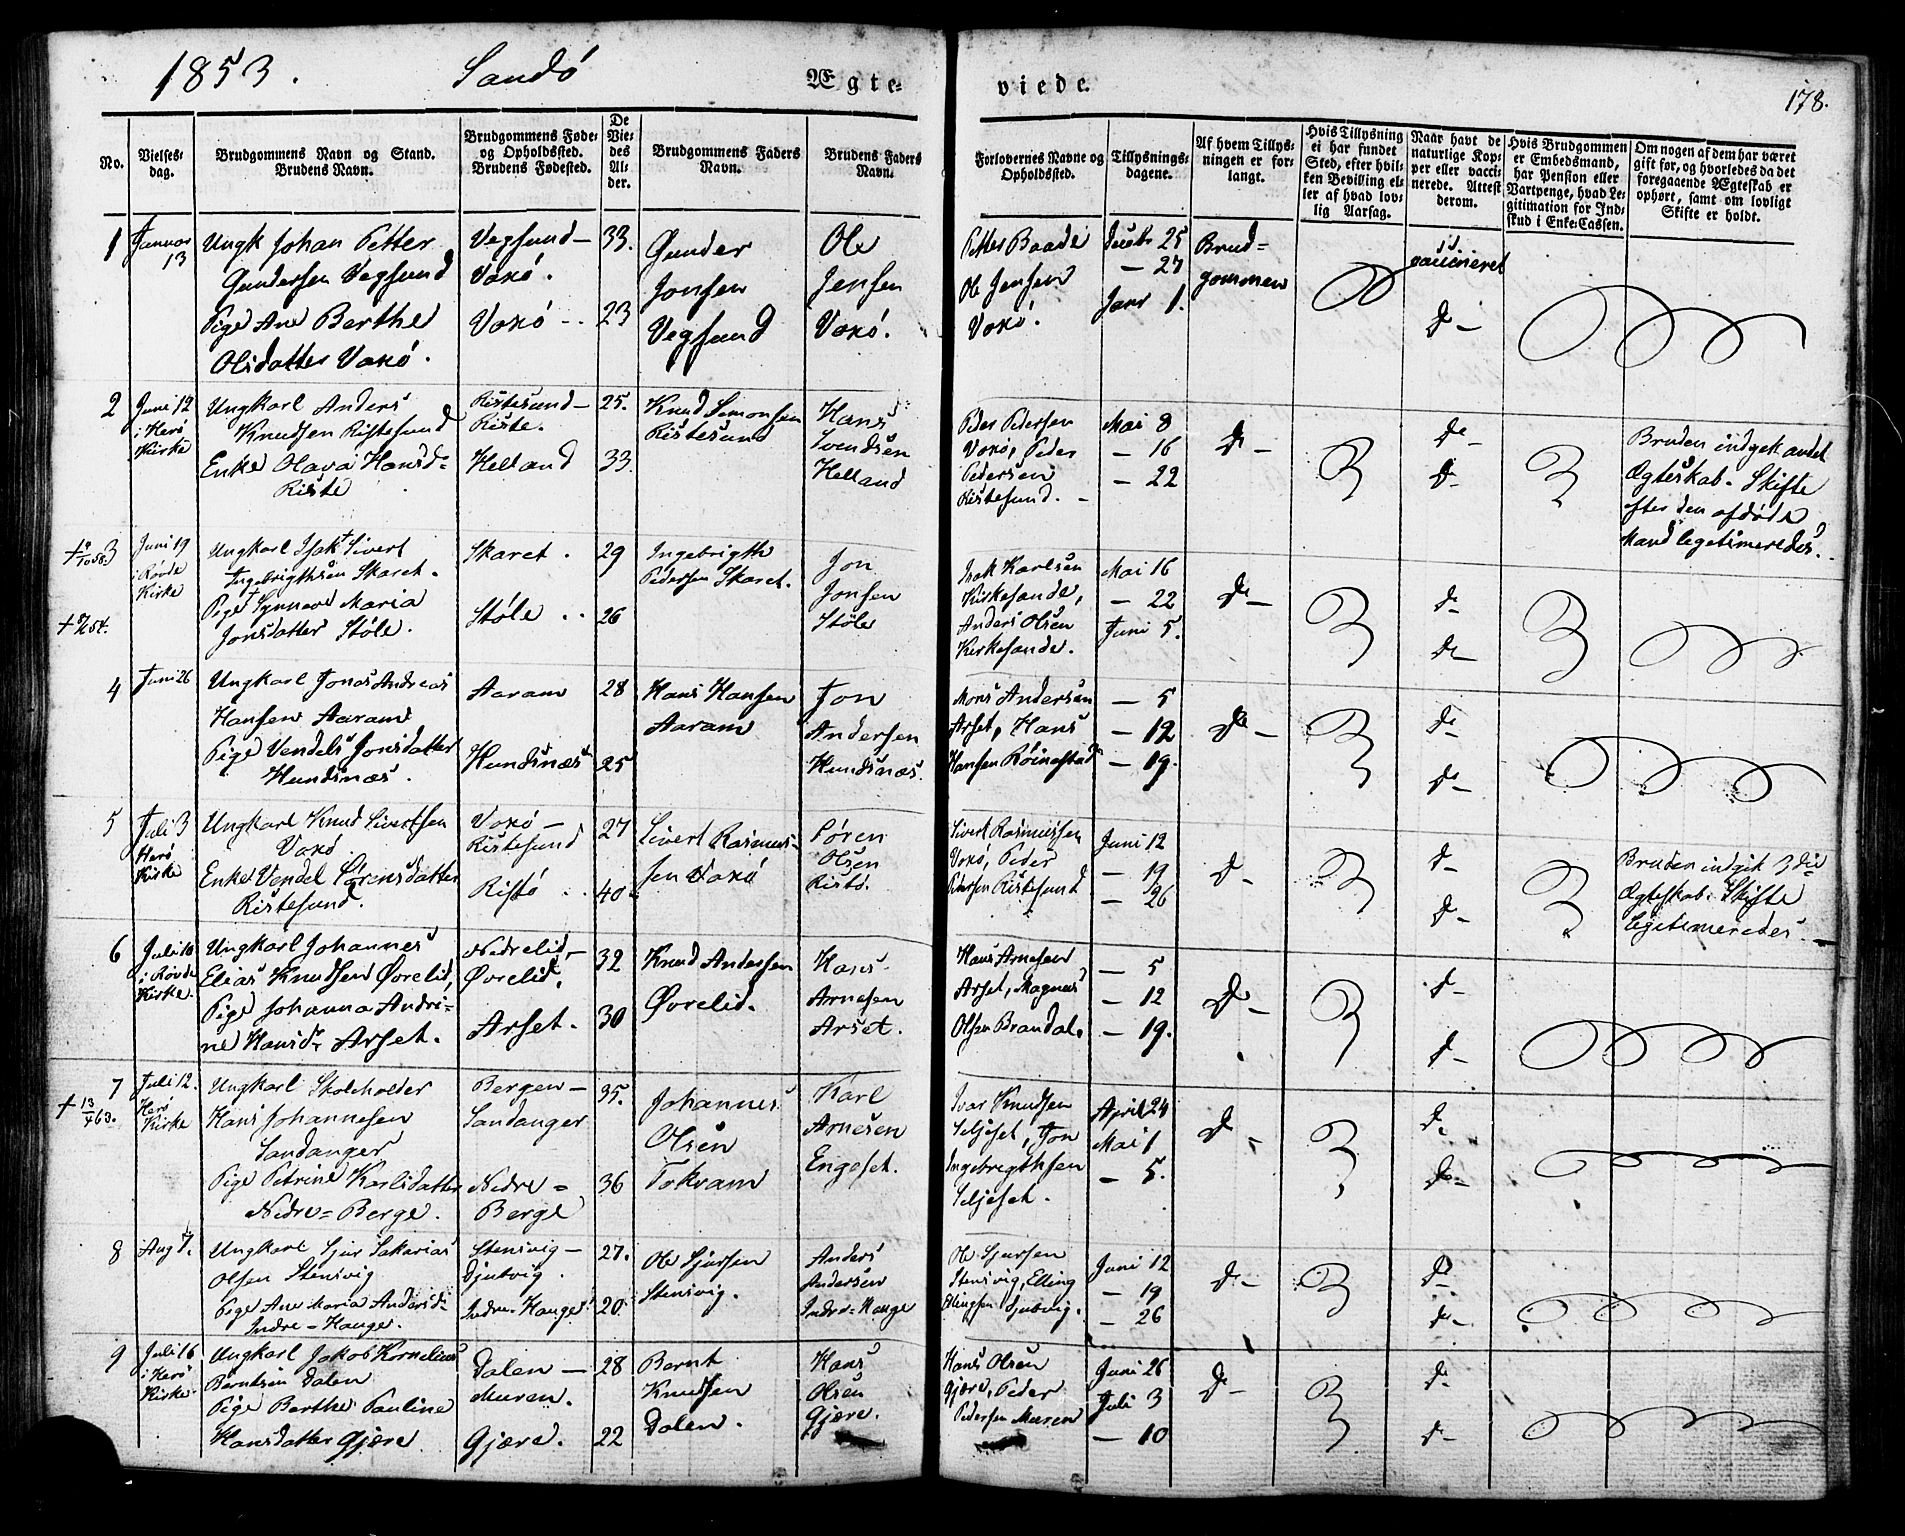 1853. Sandö Ægte-
viede. 178.
No.
Vielses-
dag.
Brudgommens Navn og Stand.
Brudens Navn.
Brudgommens Føde-
og Opholdssted.
Brudens Fødested.
De
Vie-
des
Al-
der.
Brudgommens Faders
Navn.
Brudens Faders
Navn.
Forlovernes Navne og
Opholdssted.
Tillysnings-
dagene.
Af hvem Tillys-
ningen er for-
langt.
Hvis Tillysning
ei har fundet
Sted, efter hvil-
ken Bevilling el-
ler af hvad lov-
lig Aarsag.
Naar havt de
naturlige Kop-
per eller vacci-
nerede. Attest
derom.
Hvis Brudgommen
er Embedsmand,
har Pension eller
Vartpenge, hvad Le-
gitimation for Ind-
skud i Enke-Cassen.
Om nogen af dem har været
gift før, og hvorledes da det
foregaaende Ægteskab er
ophørt, samt om lovligt
Skifte er holdt.
1
Januar
13
Ungk Johan Petter
Gundersen Vegsund
Pige Ane Berthe
Olsdatter Voxö.
Vegsund-
Voxö.
Voxö
33.
23
Gunder
Jonsen
Vegsund
Ole
Jensen
Voxö.
Petter Baade
Ole Jensen
Voxö.
Decbr 25
- 27
Janr 1.
Brud-
gommen
vaccineret
d-
2
Juni 12
i Herö
Kirke
Ungkarl Anders
Knudsen Ristesund
Enke Olava Hansd-
Riste
Ristesund-
Riste.
Helland
25.
33.
Knud Simonsen
Ristesund
Hans
Svendsen
Helland
Peder Pedersen
Voxö, Peder
Pedersen
Ristesund.
Mai 8
- 16
- 22
d-
d-
d-
Bruden indgik andet
Ægteskab. Skifte
efter den afdöde
Mand legitimeredes.
3
Juni 19
i Rövde
Kirke
Ungkarl Isak Sivert
Ingebrigthsen Skaret.
Pige Synneve Maria
Jonsdatter Stöle.
Skaret.
Stöle
29
26
Ingebrigth
Pedersen Skaret.
Jon
Jonsen
Stöle
Isak Karlsen
Kirkesande,
Anders Olsen
Kirkesande.
Mai 16
- 22
Juni 5.
d-
d-
d-
4
Juni 26
Ungkarl Jonas Andreas
Hansen Aaram
Pige Vendels Jonsdatter
Hundsnæs.
Aaram
Hundsnæs
28
25
Hans Hansen
Aaram
Jon
Andersen
Hundsnæs.
Mons Andersen
Arset, Hans
Hansen Röinestad
- 5
- 12
- 19.
d-
d-
d-
5
Juli 3
Herö
Kirke
Ungkarl Knud Sivertsen
Voxö
Enke Vendel Sörensdatter
Ristesund.
Voxö-
Ristesund
Ristö
27
40
Sivert Rasmus-
sen Voxö
Sören
Olsen
Ristö.
Sivert Rasmussen
Voxö, Peder
Pedersen Ristesund
Juni 12
- 19
- 26
d-
d-
d-
Bruden indgik 3die
Ægteskab. Skifte
legitimeredes.
6
Juli 10
i Rövde
Kirke.
Ungkarl Johannes
Elias Knudsen Øvrelid,
Pige Johanna Andri-
ne Hansdr Arset.
Nedrelid-
Øvrelid.
Arset.
32
30
Knud Andersen
Øvrelid.
Hans
Arnesen
Arset.
Hans Arnesen
Arset, Magnus
Olsen Brandal.
- 5
- 12
- 19.
d-
d-
d-
7
+ 13/4 63.
Juli 12.
Herö
Kirke
Ungkarl Skoleholder
Hans Johannesen
Sandanger
Pige Petrine Karlsdatter
Nedre-Berge.
Bergen-
Sandanger
Nedre-
Berge
35.
36
Johannes
Olsen
Tokvam
Karl
Arnesen
Engeset.
Ivar Knudsen
Seljeset, Jon
Ingebrigthsen
Seljeset.
April 24
Mai 1
- 5.
d-
d-
d-
8
Aug 7.
Ungkarl Sjur Sakarias
Olsen Stensvig
Pige Ane Maria Andersd-
Indre-Hauge.
Stensvig-
Djubvig.
Indre-Hauge
27.
20.
Ole Sjursen
Stensvig.
Anders
Andersen
Indre-Hauge
Ole Sjursen
Stensvig, Elling
Ellingsen Djubvig.
Juni 12
- 19
- 26
d-
d-
d-
9
Juli 16
i Herö
Kirke
Ungkarl Jakob Kornelius
Berntsen Dalen
Pige Berthe Pauline
Hansdatter Gjære.
Dalen-
Muren.
Gjære.
28
22
Bernt
Knudsen
Dalen.
Hans
Olsen
Gjære.
Hans Olsen
Gjære, Peder
Pedersen Muren
Juni 26
Juli 3
- 10
d-
d-
d-